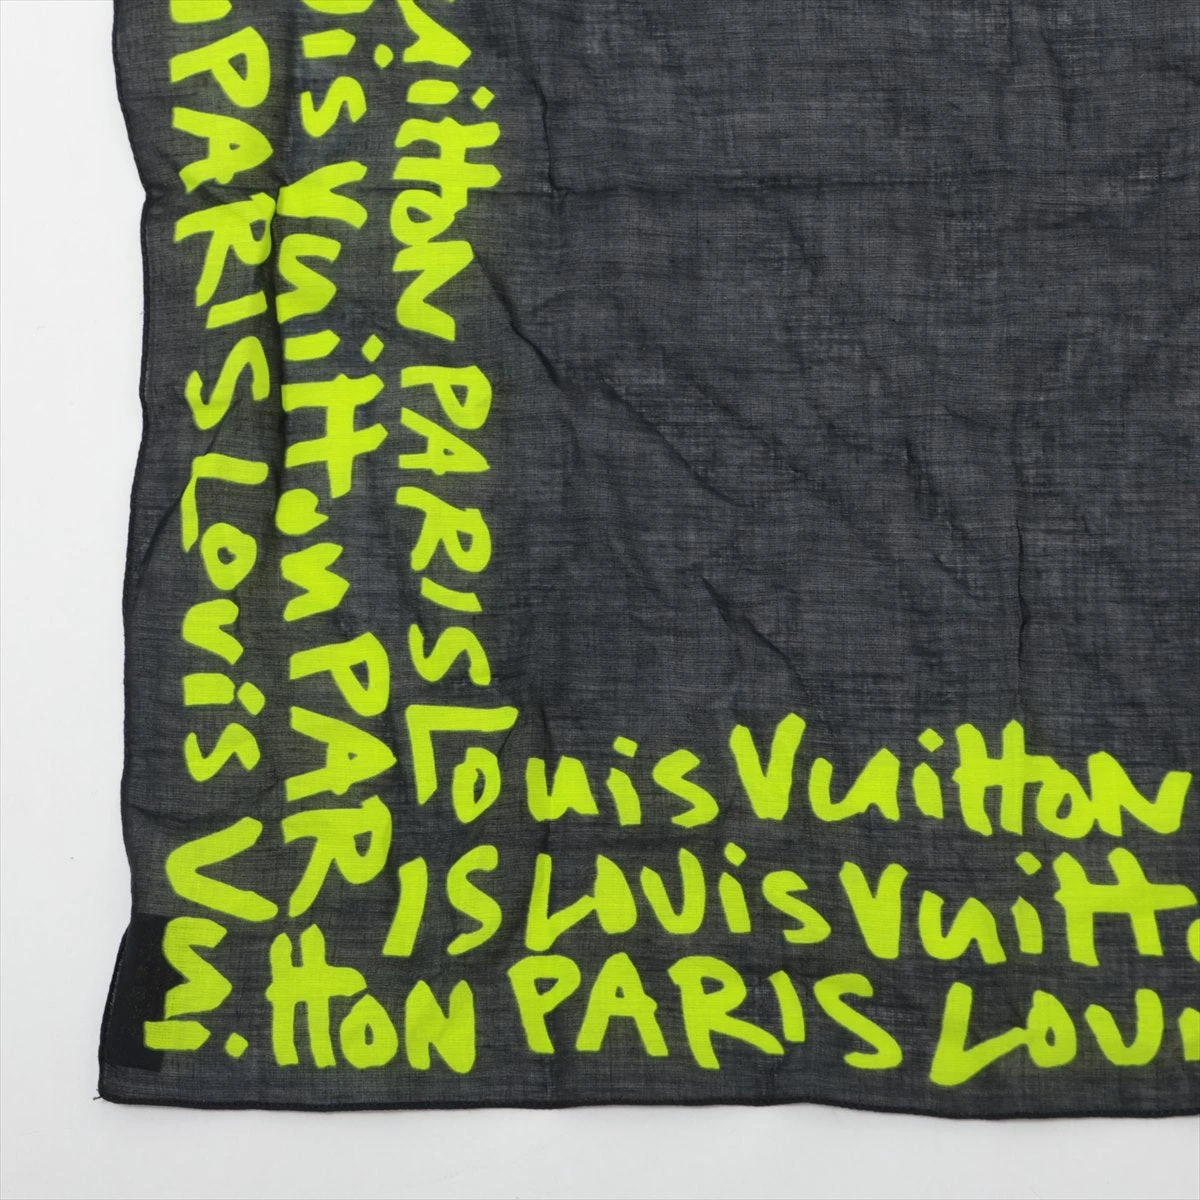 uitton PARIS Louis Vuitton
is Vuitton PARIS Louis Vuitt
PARIS Louis Vuitton PARIS Lou